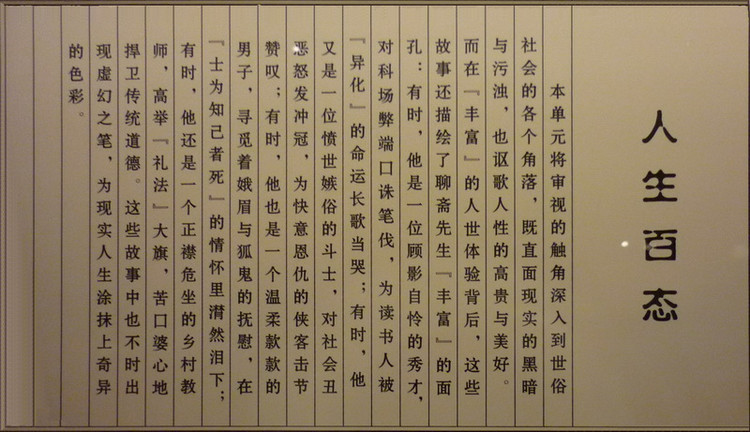 人生百态
本单元将审视的触角深入到世俗
社会的各个角落，既直面现实的黑暗
与污浊，也讴歌人性的高贵与美好。
而在『丰富』的人世体验背后，这些
故事还描绘了聊斋先生『丰富』的面
孔：有时，他是一位顾影自怜的秀才，
对科场弊端口诛笔伐，为读书人被
『异化』的命运长歌当哭；有时，他
又是一位愤世嫉俗的斗士，对社会丑
恶怒发冲冠，为快意恩仇的侠客击节
赞叹；有时，他也是一个温柔款款的
男子，寻觅着娥眉与狐鬼的抚慰，在
『士为知己者死』的情怀里潸然泪下；
有时，他还是一个正襟危坐的乡村教
师，高举『礼法』大旗，苦口婆心地
捍卫传统道德。这些故事中也不时出
现虚幻之笔，为现实人生涂抹上奇异
的色彩。